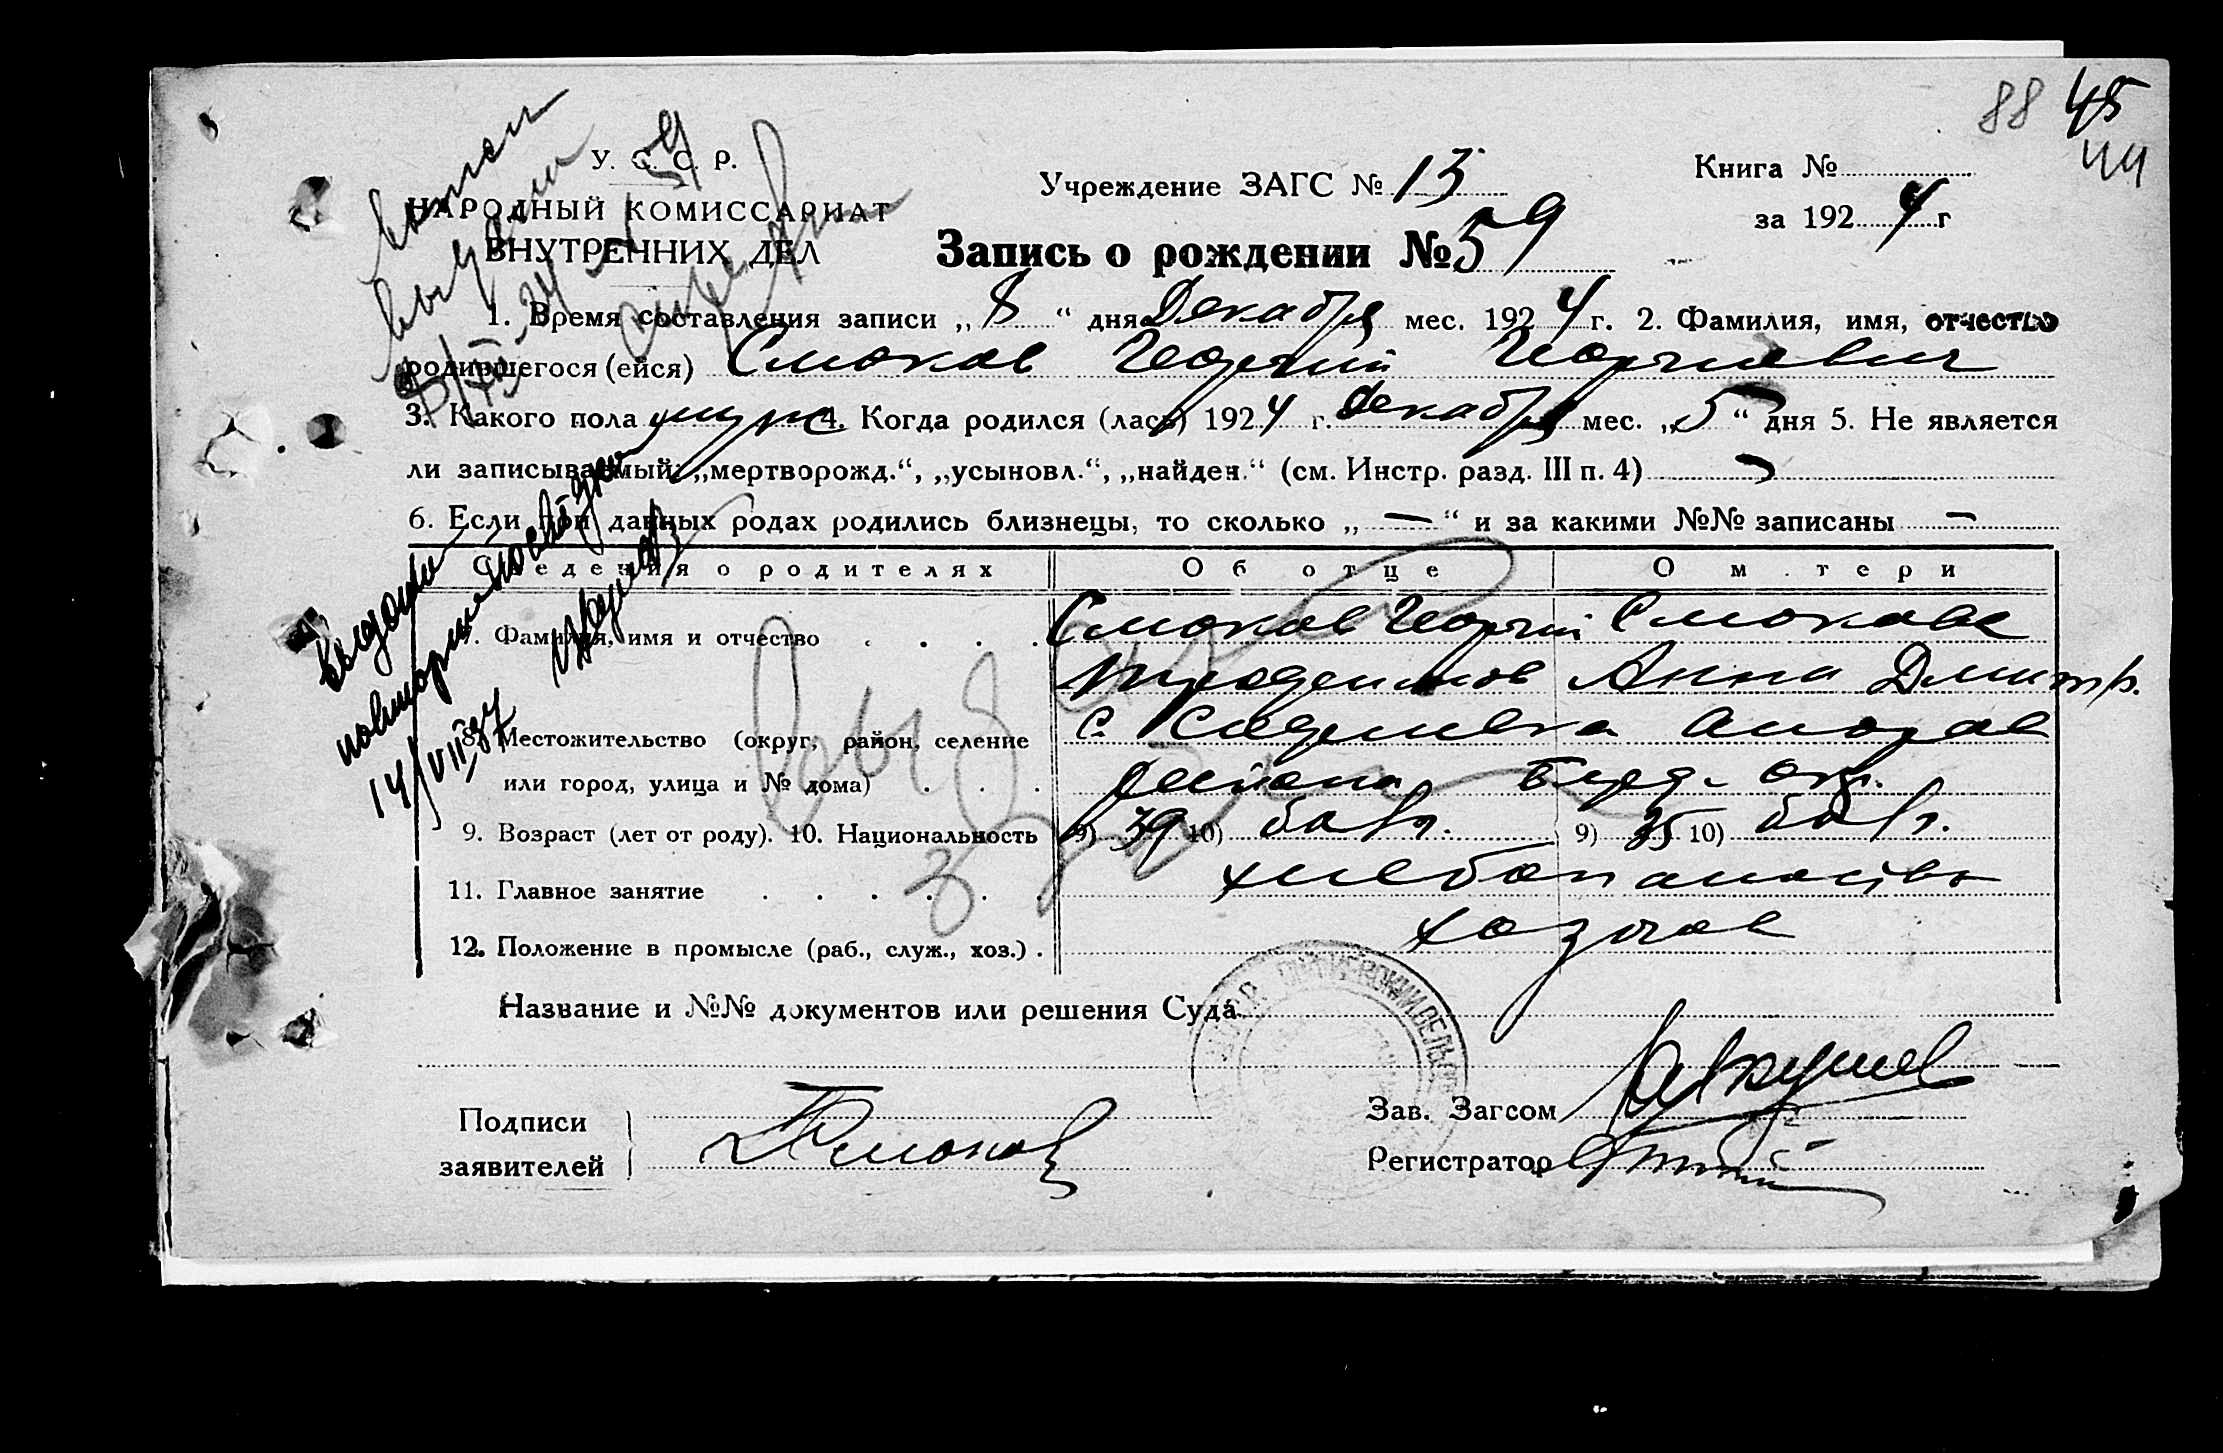 88 45
44
У. С. С. Р.
НАРОДНЫЙ КОМИССАРИАТ
ВНУТРЕННИХ ДЕЛ
Учреждение ЗАГС № 13
Книга №
за 1924 г
Запись о рождении № 59
1. Время составления записи „8“ дня Декабря мес. 1924 г. 2. Фамилия, имя, отчество
родившегося (ейся) Смоков Георгий Георгиевич
3. Какого пола муж 4. Когда родился (лась) 1924 г. Декабря мес. „5“ дня 5. Не является
ли записываемый: „мертворожд.“, „усыновл.“, „найден.“ (см. Инстр. разд. III п. 4)
6. Если при данных родах родились близнецы, то сколько „—“ и за какими №№ записаны —
Сведения о родителях Об отце О матери
7. Фамилия, имя и отчество Смоков Георгий Смокова
Анна Дмитр.
8. Местожительство (округ, район, селение с.
или город, улица и № дома) района Берд. окр.
9. Возраст (лет от роду). 10. Национальность 9) 39 10) болг. 9) 35 10) болг.
11. Главное занятие хлебопашество
12. Положение в промысле (раб., служ., хоз.) хозяев
Название и №№ документов или решения Суда
Подписи
заявителей Смоков
Зав. Загсом
Регистратор
Выдано
повторное
14/VII 37